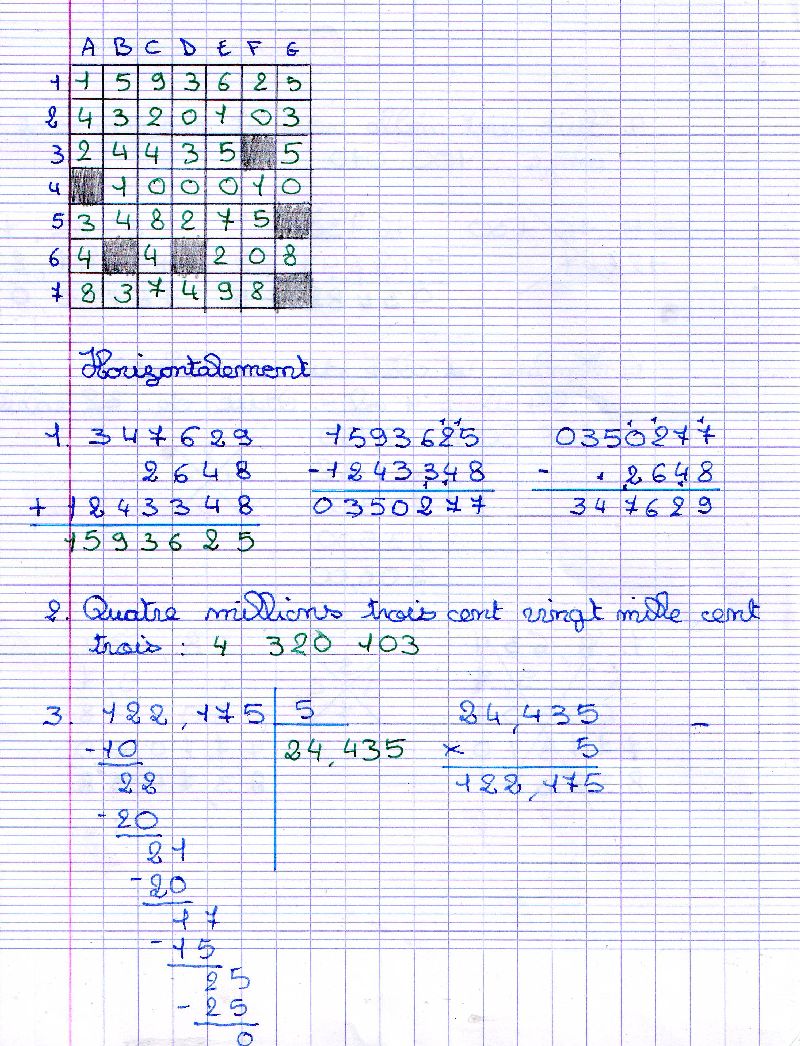 A B C D E F G
1 1 5 9 3 6 2 5
2 4 3 2 0 1 0 3
3 2 4 4 3 5 5
4 1 0 0 0 1 0
5 3 4 8 2 7 5
6 4 4 2 0 8
7 8 3 7 4 9 8
Horizontalement
1. 347629 1593625 0350277
2648 -1243348 - 2648
+ 1243348 0350277 347629
1593625
2. Quatre millions trois cent vingt mille cent
trois : 4 320 103
3. 122,175 5 24,435 -
-10 24,435 x 5
22 122,175
-20
21
-20
17
-15
25
-25
0